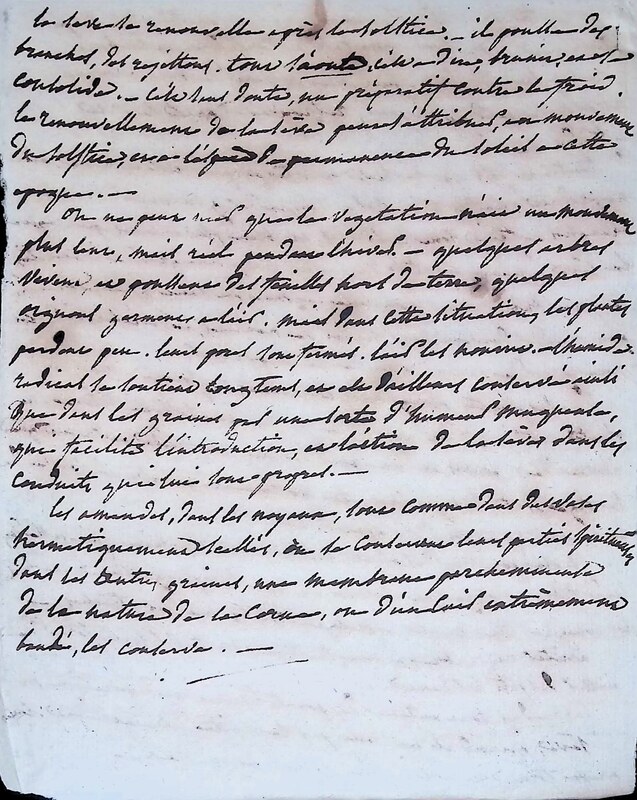 la seve se renouvelle après le solstice. — il pousse des
branches, des rejettons. tout s'aoute, c'est a dire, brunir, et se
consolide. — c'est sans doute, un préparatif contre le froid.
le renouvellement de la sève peut s'attribuer, au mouvement
du solstice, et a l'espece de permanence du soleil a cette
epoque. —
On ne peut nier que la vegetation n'aie un mouvement
plus lent, mais réel pendant l'hiver. — quelques arbres
verts, en poussent des feuilles hors de terre, quelques
oignons germent a l'air. mais dans cette situation, les plantes
perdent peu. leurs pores sont fermés. l'air les nourrit. l'humide
radical se soutient longtems, et est d'ailleurs conservé ainsi
que dans les graines par une sorte d'humeur muqueuse,
qui facilite l'introduction, et l'action de la sève dans les
conduits qui lui sont propres. —
les amandes, dans les noyaux, sont comme dans des vases
hermetiquement scellés, où se conservent leurs parties spiritueuses
dans les autres graines, une membrane parcheminée
de la nature de la corne, ou d'un cuir extrêmement
bandé, les conserve. —